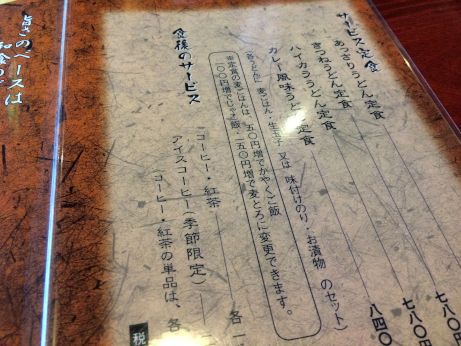 サービス定食
あっさりうどん定食 七八〇
きつねうどん定食 七八〇
ハイカラうどん定食 八四〇
カレー風味うどん定食
(各うどんに 麦ごはん・生玉子 又は 味付けのり・お漬物 のセット)
※定食の麦ごはんは、五〇円増でかやくご飯
一〇〇円増でじゃこ飯・二五〇円増で麦とろに変更できます。
食後のサービス
コーヒー・紅茶 各一
アイスコーヒー(季節限定)
コーヒー・紅茶の単品は、各
税
旨さのベースは